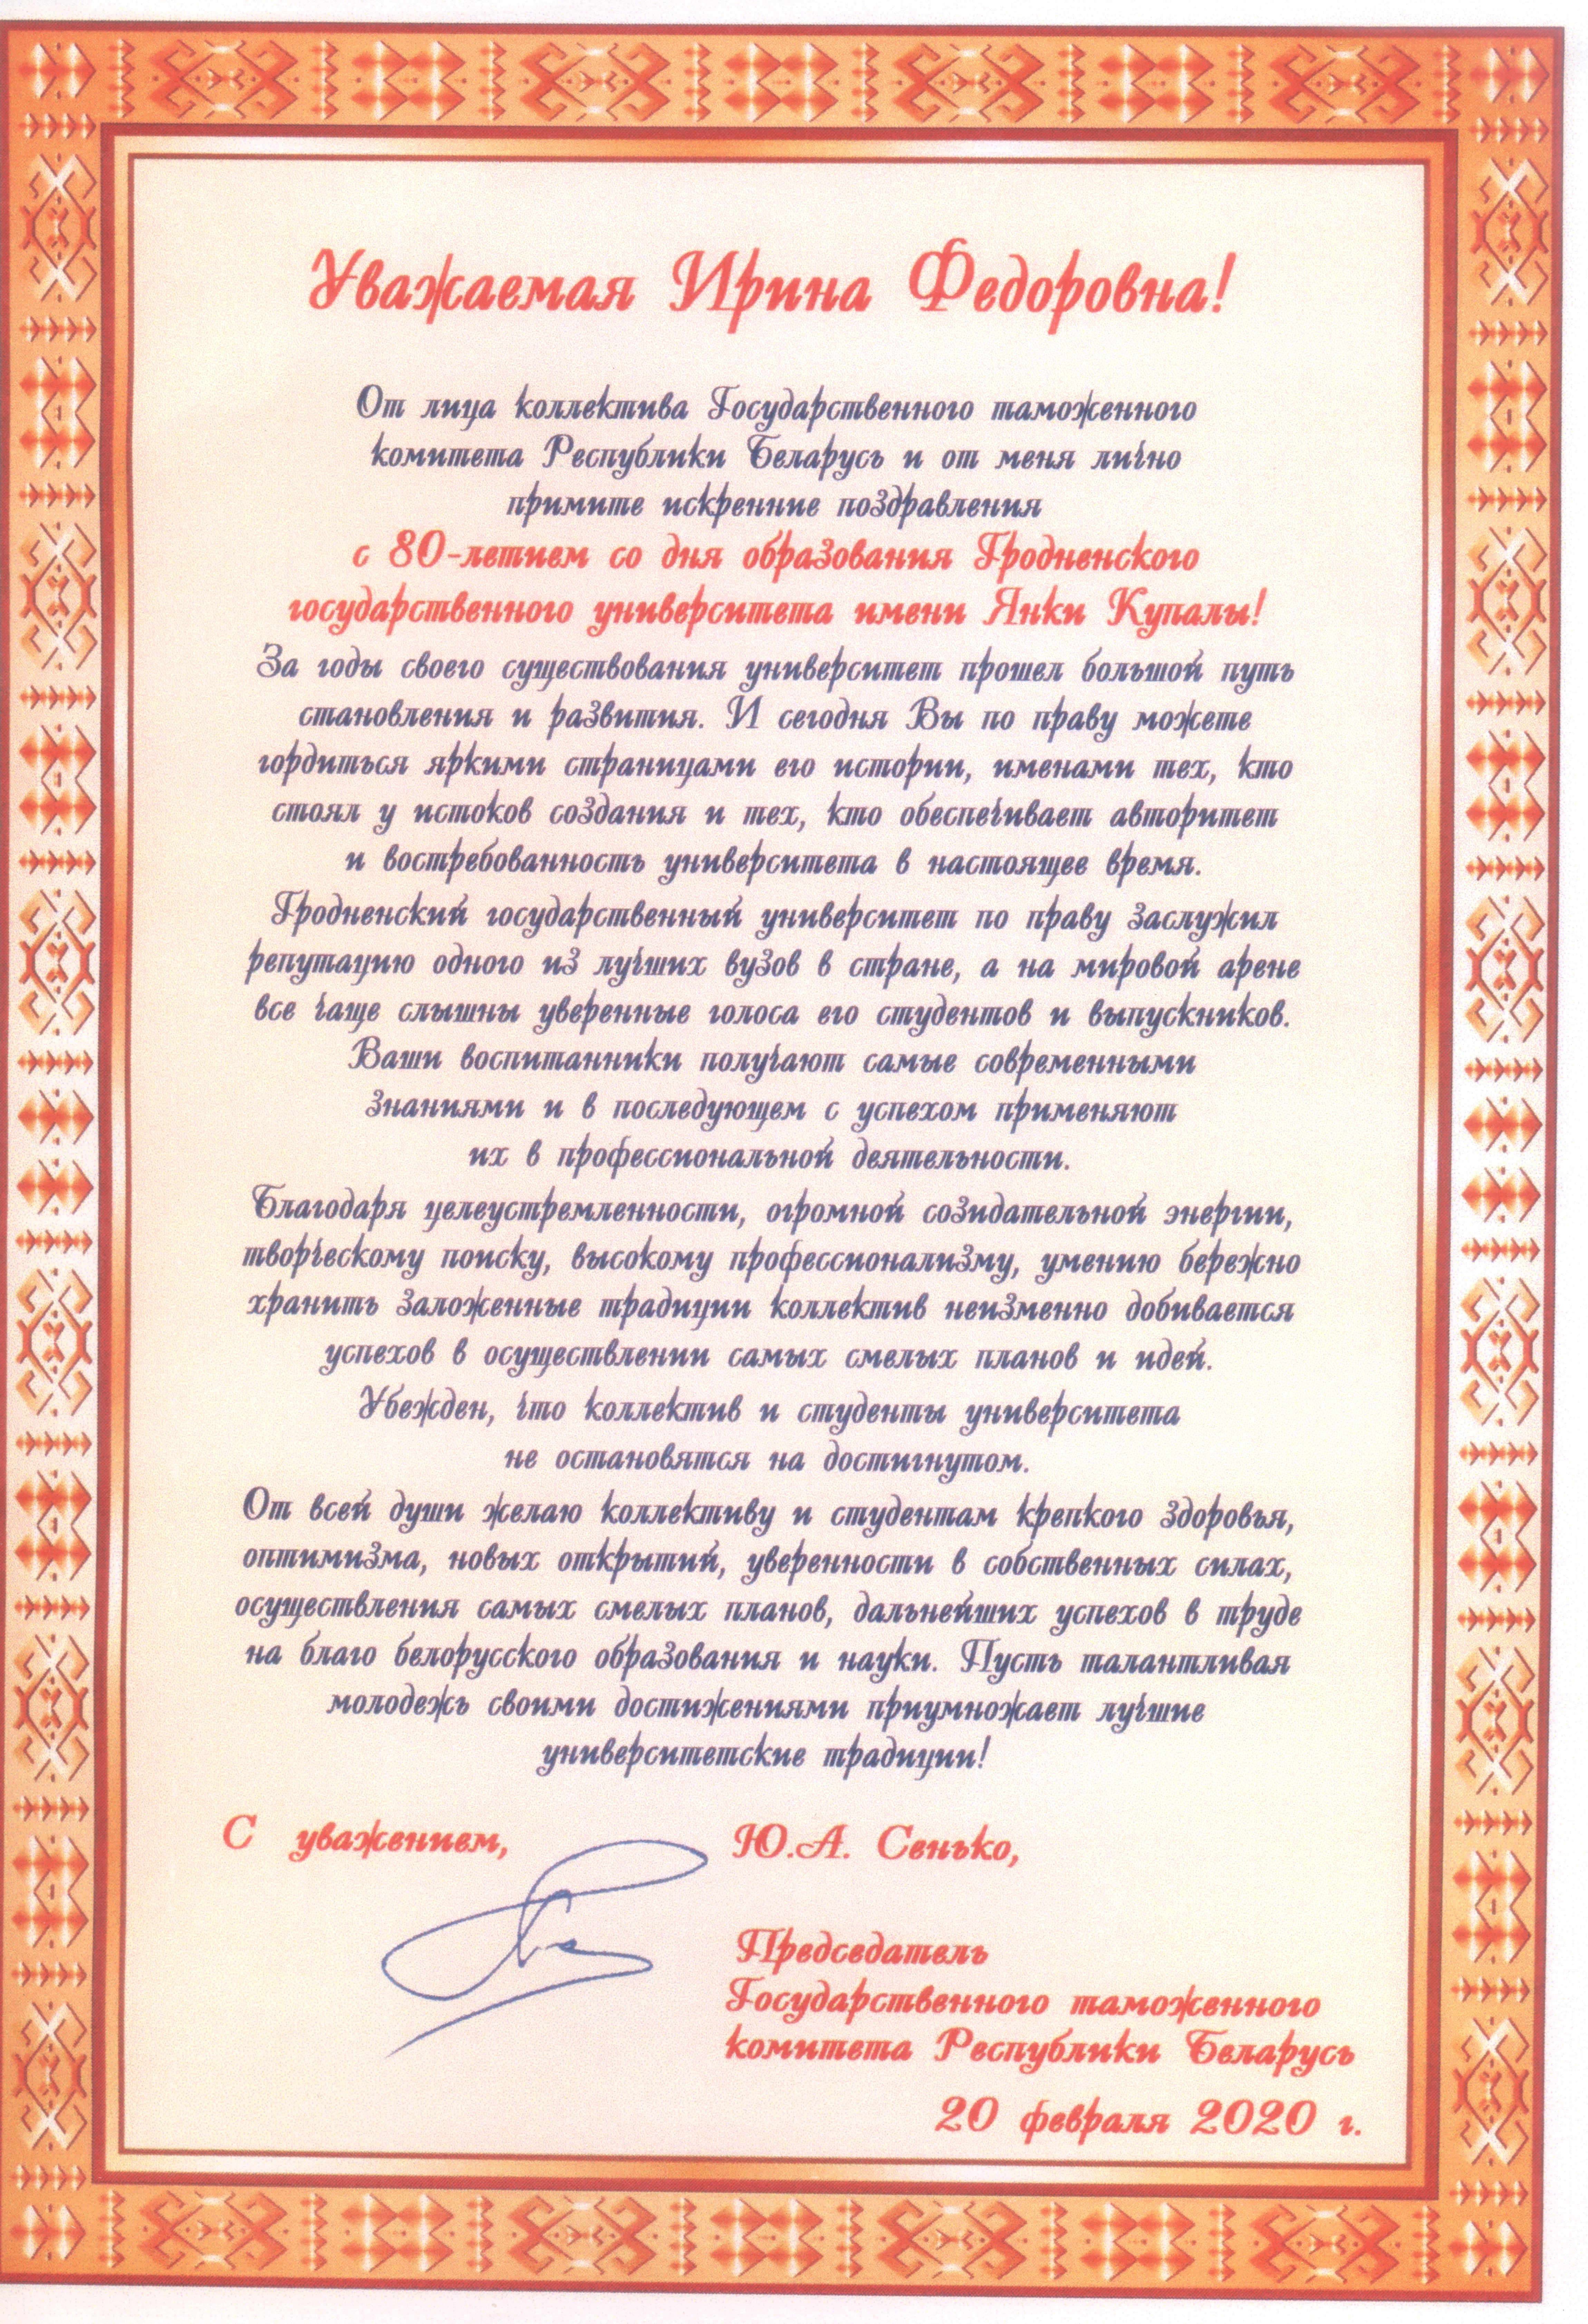 Уважаемая Ирина Федоровна!
От лица коллектива Государственного таможенного
комитета Республики Беларусь и от меня лично
примите искренние поздравления
с 80-летием со дня образования Гродненского
государственного университета имени Янки Купалы!
За годы своего существования университет прошел большой путь
становления и развития. И сегодня Вы по праву можете
гордиться яркими страницами его истории, именами тех, кто
стоял у истоков создания и тех, кто обеспечивает авторитет
и востребованность университета в настоящее время.
Гродненский государственный университет по праву заслужил
репутацию одного из лучших вузов в стране, а на мировой арене
все чаще слышны уверенные голоса его студентов и выпускников.
Ваши воспитанники получают самые современными
знаниями и в последующем с успехом применяют
их в профессиональной деятельности.
Благодаря целеустремленности, огромной созидательной энергии,
творческому поиску, высокому профессионализму, умению бережно
хранить заложенные традиции коллектив неизменно добивается
успехов в осуществлении самых смелых планов и идей.
Убежден, что коллектив и студенты университета
не остановятся на достигнутом.
От всей души желаю коллективу и студентам крепкого здоровья,
оптимизма, новых открытий, уверенности в собственных силах,
осуществления самых смелых планов, дальнейших успехов в труде
на благо белорусского образования и науки. Пусть талантливая
молодежь своими достижениями приумножает лучшие
университетские традиции!
С уважением, Ю.А. Сенько,
Председатель
Государственного таможенного
комитета Республики Беларусь
20 февраля 2020 г.